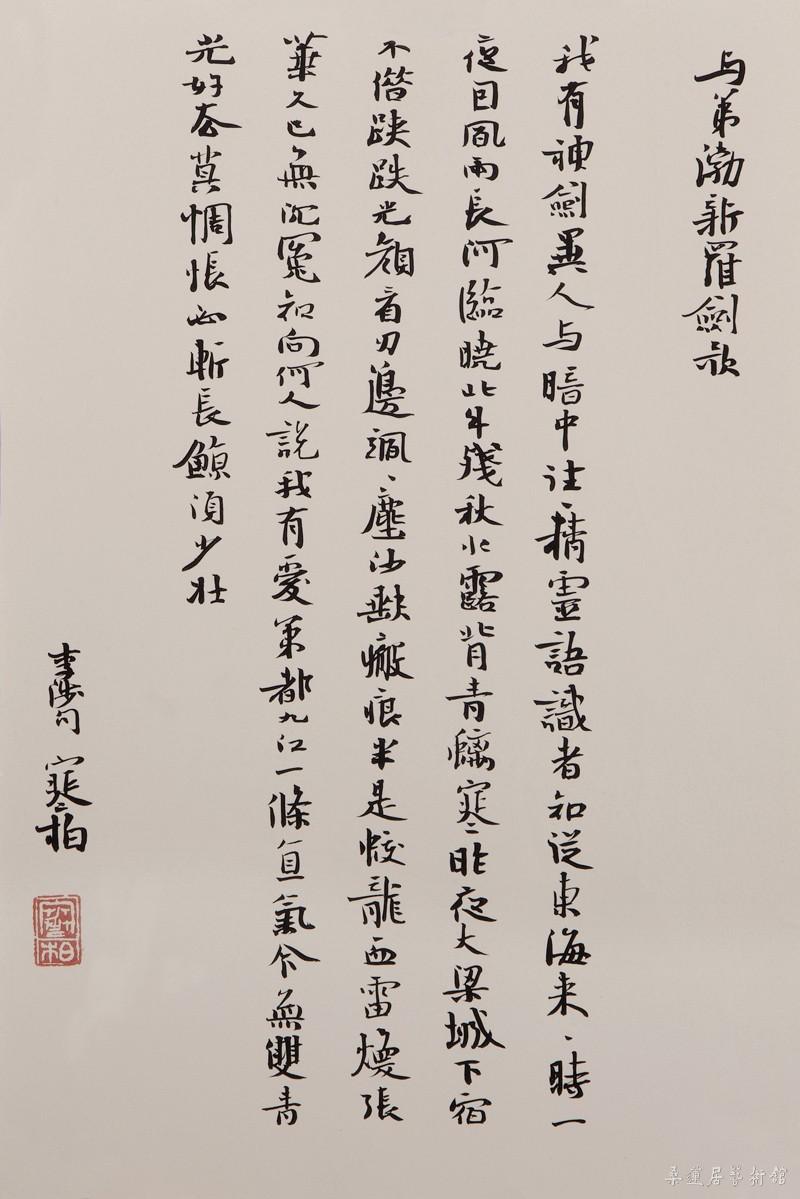 与弟渤新羅劍歌
我有神劍異人与暗中往〻精靈語識者知從東海来〻時一
夜因風雨長河臨曉北斗殘秋水露背青螭寒昨夜大梁城下宿
不借跌跌光顏看刃邊颯〻塵沙缺瘢痕半是蛟龍血雷煥張
華久已無沉冤知向何人說我有愛弟都九江一條直氣今無雙青
光好去莫惆悵必斬長鯨須少壯
李涉句 寒柏
寒柏
桑蓮居藝術館